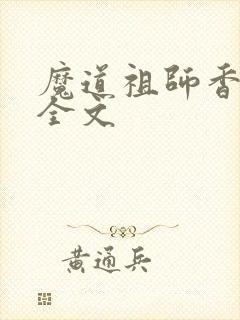 魔道祖師香
全文
黃通兵